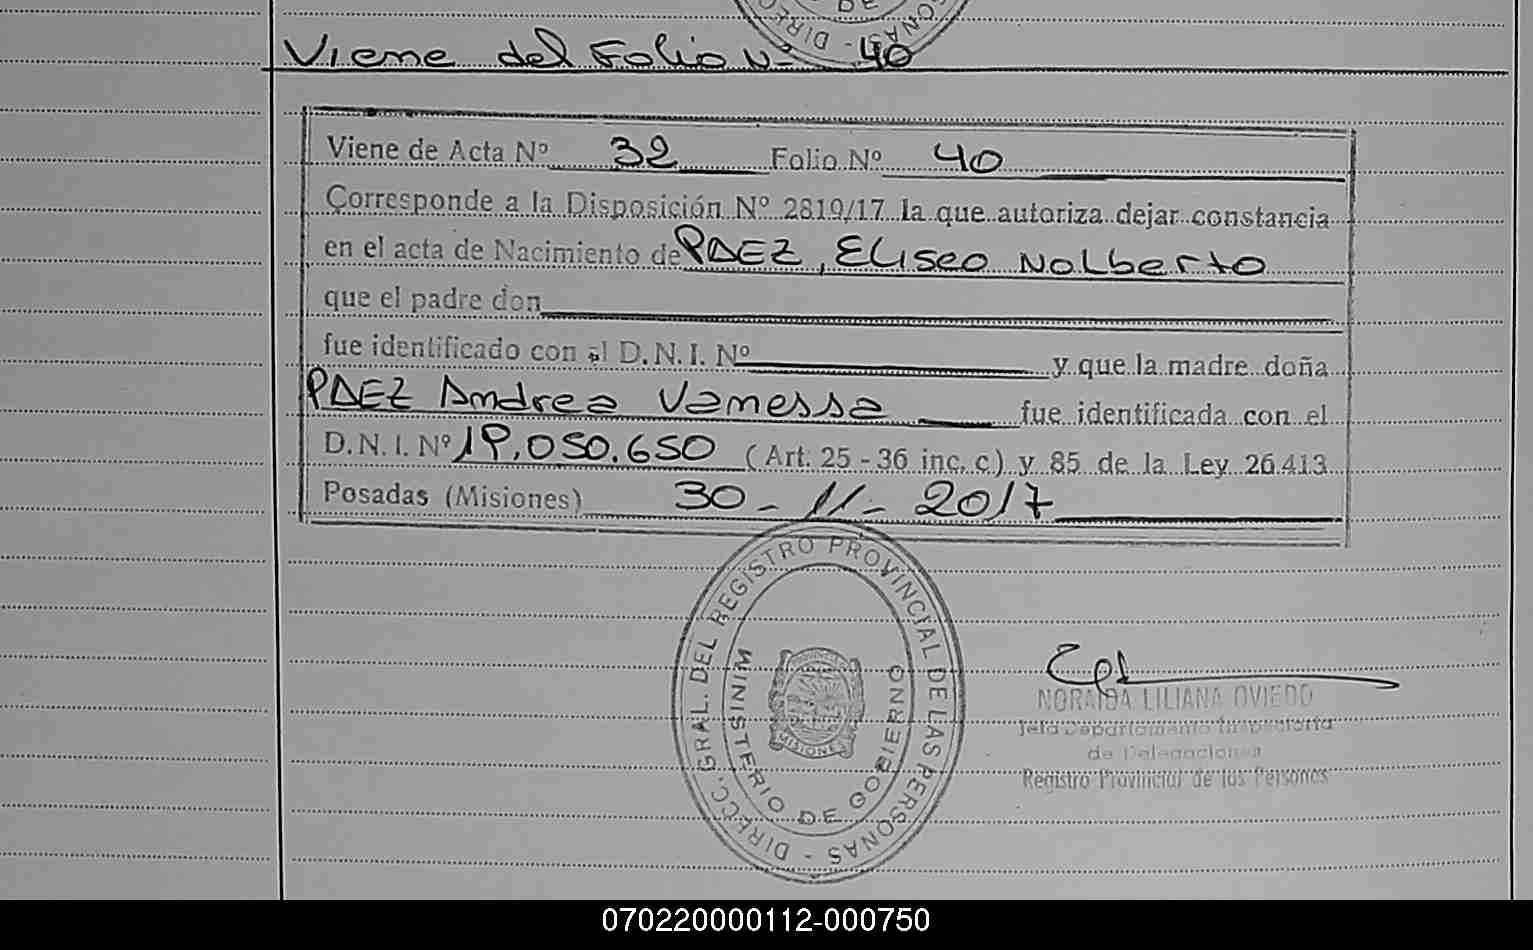 DIRECC. GRAL. DE PERSONAS - DE
Viene del Folio Nº 40
Viene de Acta Nº 32 Folio Nº 40
Corresponde a la Disposición Nº 2819/17 la que autoriza dejar constancia
en el acta de Nacimiento de PAEZ, Eliseo Nolberto
que el padre don
fue identificado con el D.N.I. Nº y que la madre doña
PAEZ Andrea Vanessa fue identificada con el
D.N.I. Nº 19.050.650 (Art. 25 - 36 inc. c) y 85 de la Ley 26.413
Posadas (Misiones) 30 - 11 - 2017
DIRECC. GRAL. DEL REGISTRO PROVINCIAL DE LAS PERSONAS -
MINISTERIO DE GOBIERNO
MISIONES
NORAIDA LILIANA OVIEDO
Jefa Departamento Inspectoría
de Delegaciones
Registro Provincial de las Personas
070220000112-000750